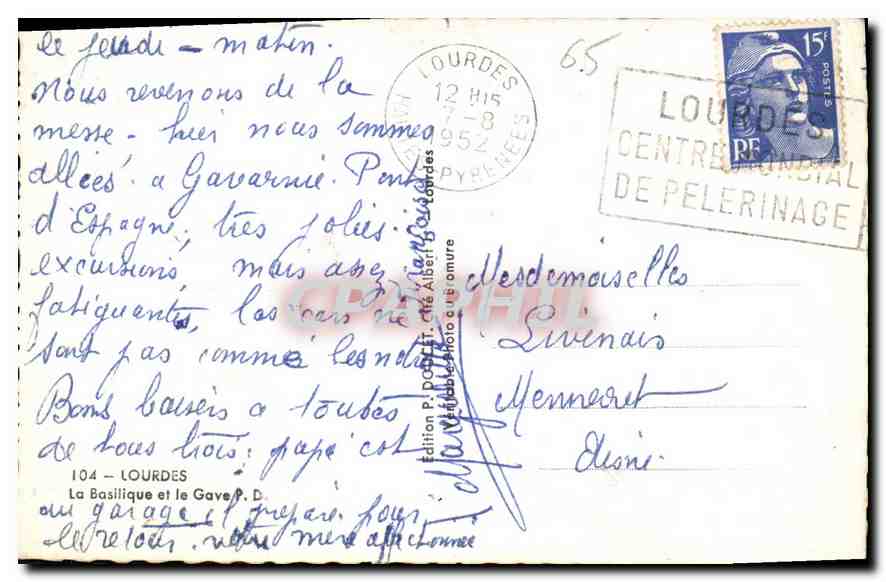 le jeudi - matin.
Nous revenons de la
messe - hier nous sommes
allées à Gavarnie. Pont
d'Espagne, très jolies
excursions, mais assez
fatigantes, les cars ne
sont pas comme les nôtres
Bons baisers à toutes
de tous trois: papa est
au garage il prépare pour
le retour. votre mère affectionnée
104 - LOURDES
La Basilique et le Gave P. D.
LOURDES
12 H15
7-8
1952
HAUTES-PYRENEES
65
15F
POSTES
RF
LOURDES
CENTRE MONDIAL
DE PELERINAGE
Edition P. DOUCET, cité Albert Lourdes
Véritable Photo au Bromure
CPAPHIL
Mesdemoiselles
Livenais
Mennecret